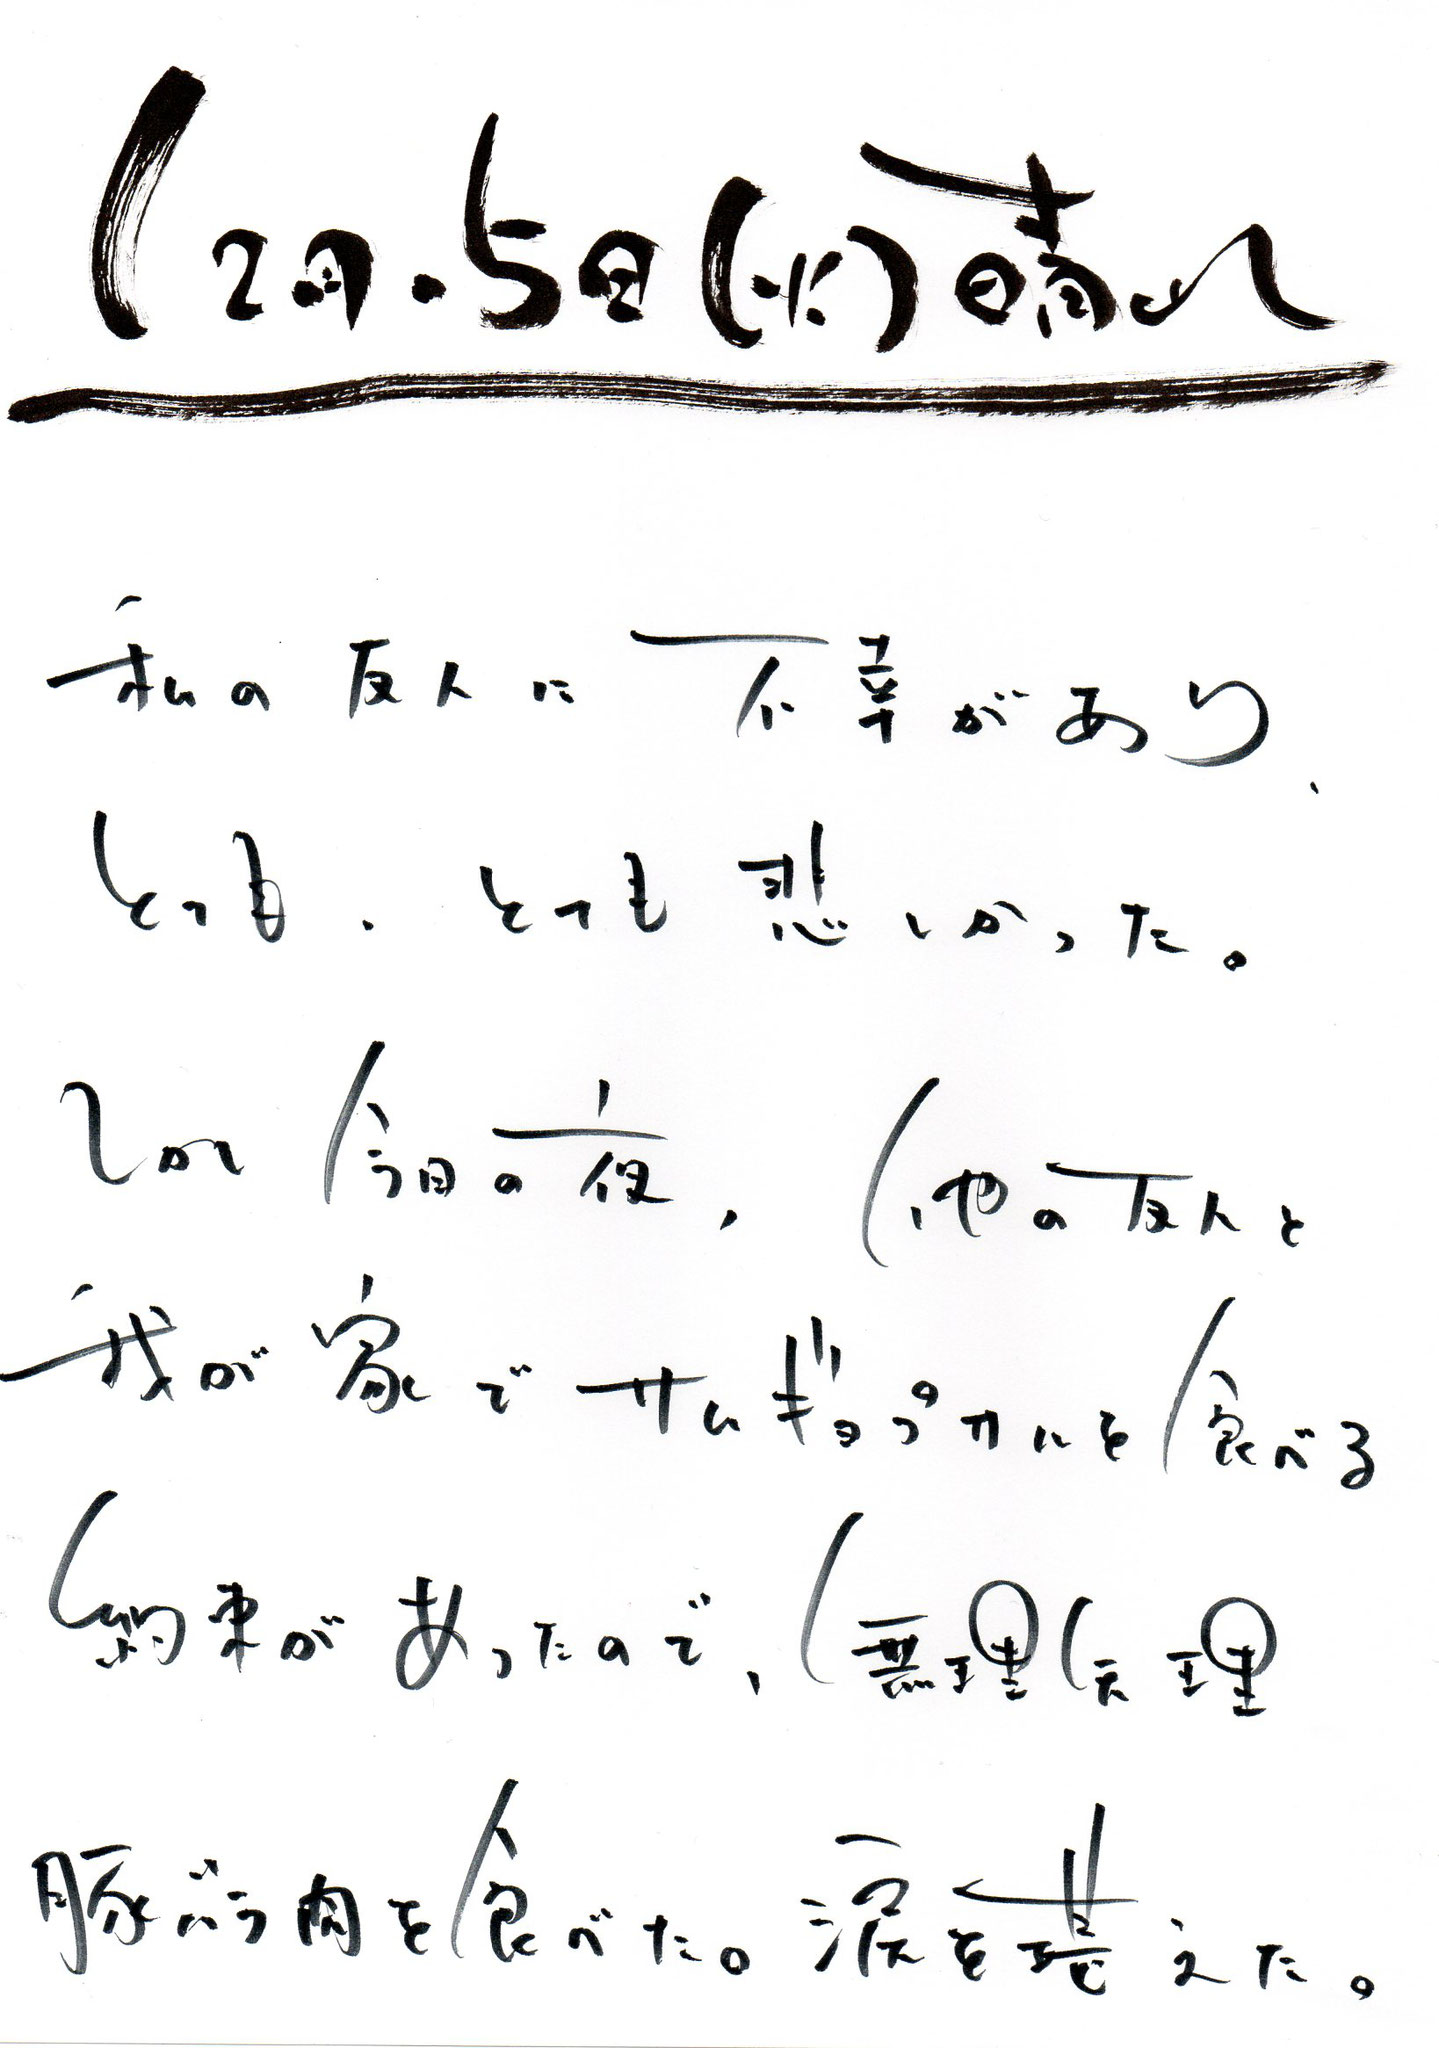 12月.5日(水)晴れ
私の友人に不幸があり、
とっても、とっても悲しかった。
しかし今日の夜、他の友人と
我が家でサムギョプサルを食べる
約束があったので、無理矢理
豚バラ肉を食べた。涙を堪えた。